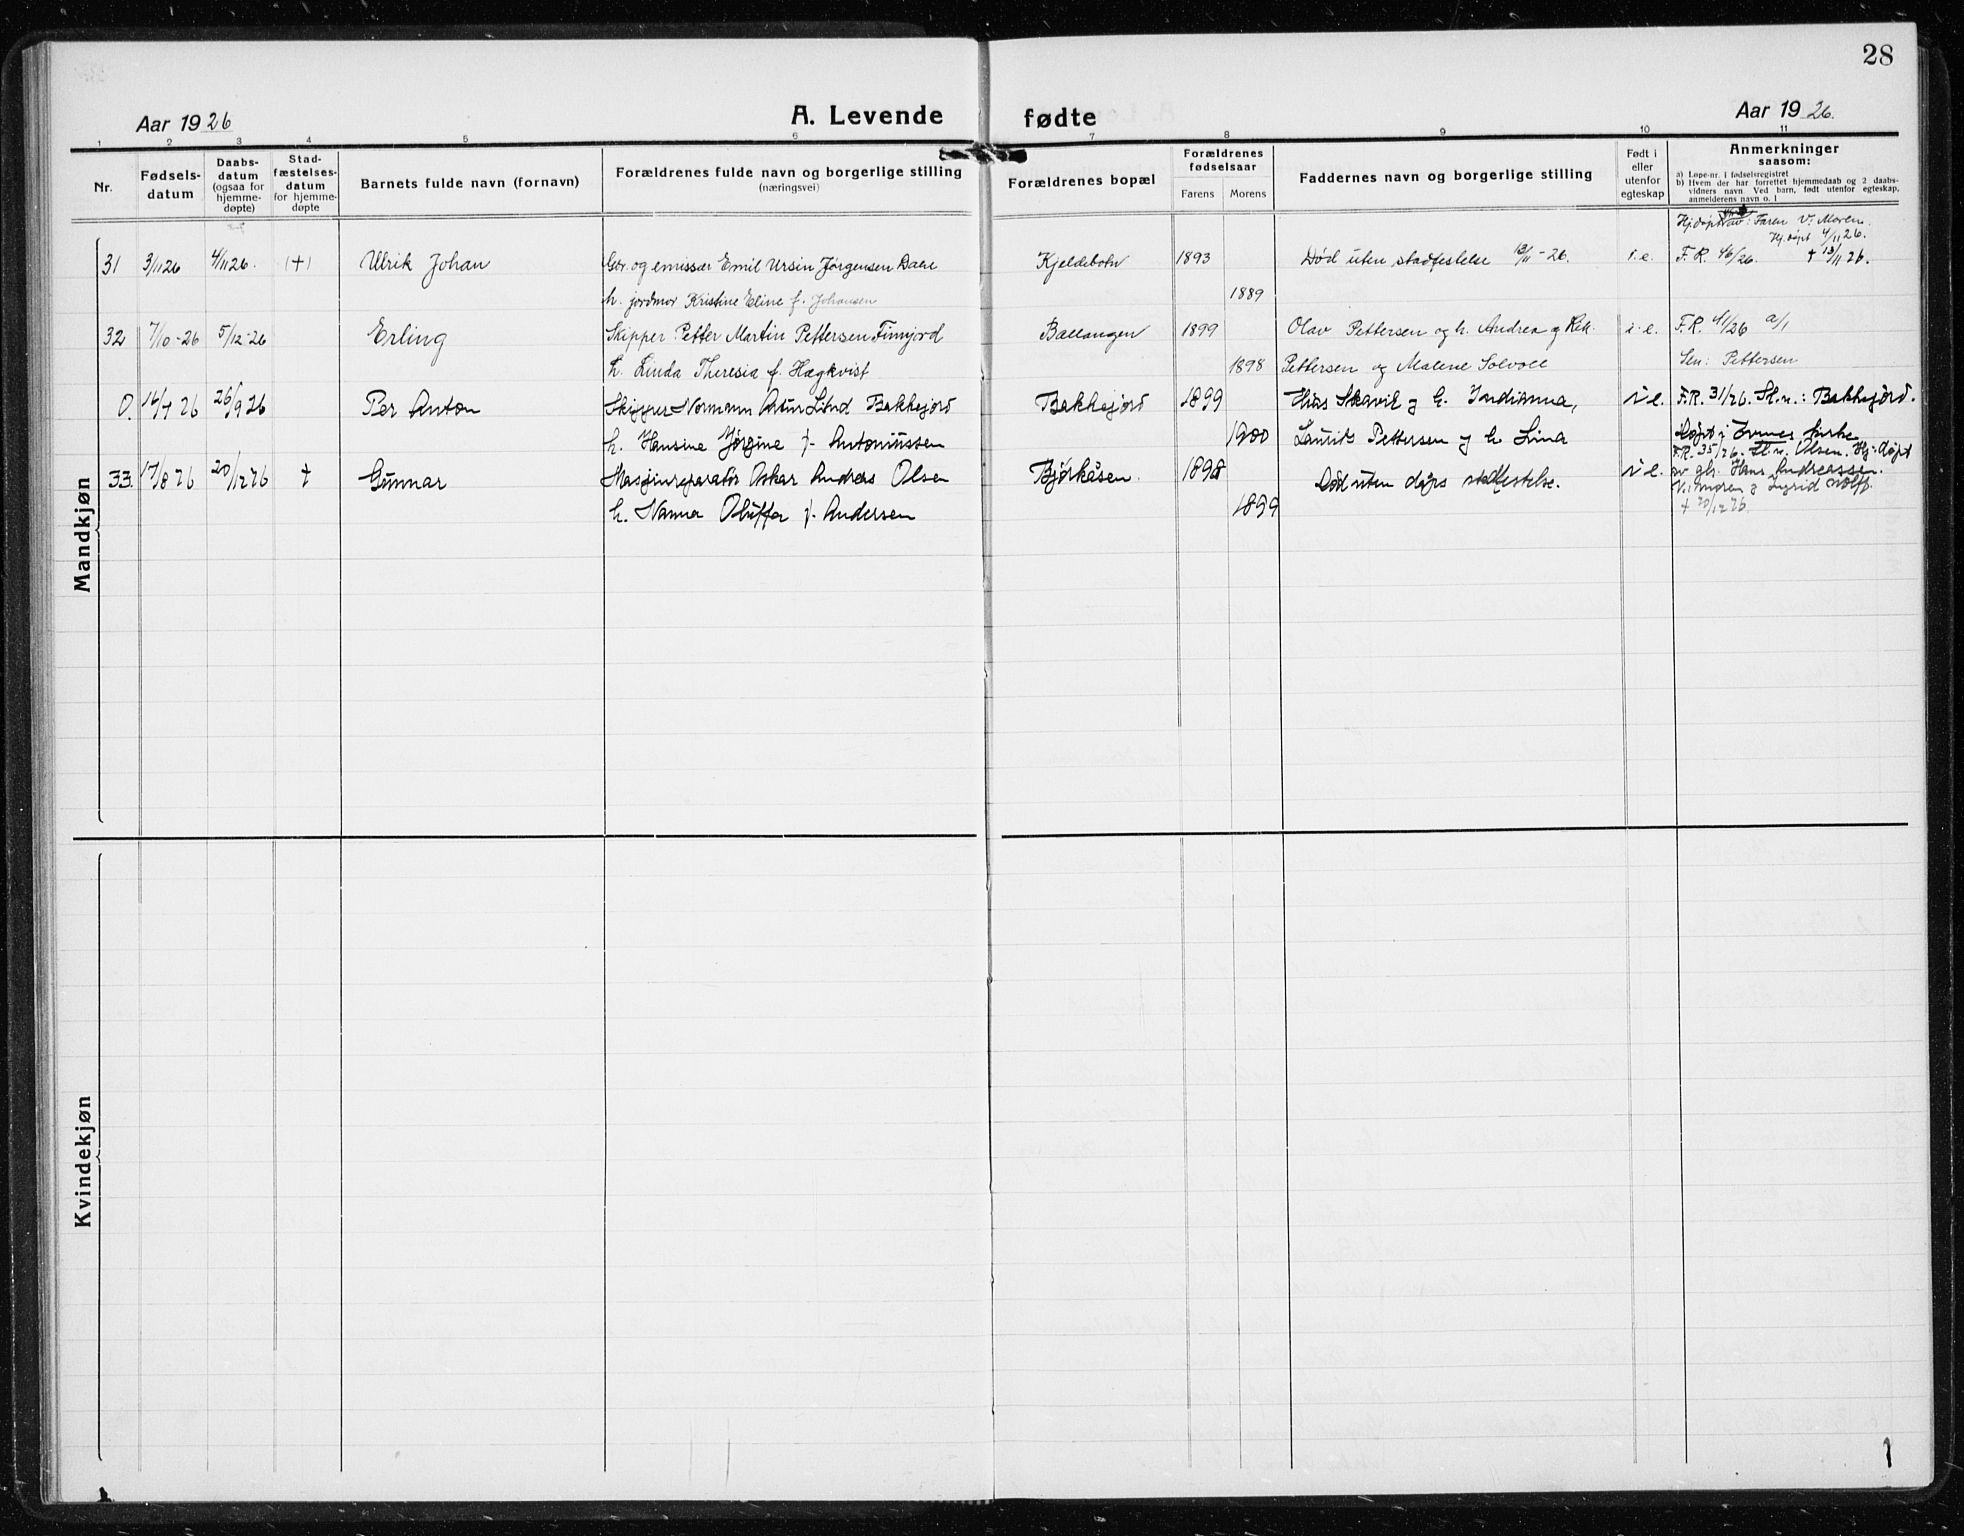 28
Aar 1926
A. Levende fødte
Aar 1926.
1 2 3 4 5 6 7 8 9 10 11
Nr.
Fødsels-
datum
Daabs-
datum
(ogsaa for
hjemme-
døpte)
Stad-
fæstelses-
datum
for hjemme-
døpte
Barnets fulde navn (fornavn)
Forældrenes fulde navn og borgerlige stilling
(næringsvei)
Forældrenes bopæl
Forældrenes
fødselsaar
Farens Morens
Faddernes navn og borgerlige stilling
Født i
eller
utenfor
egteskap
Anmerkninger
saasom:
a) Løpe-nr. i fødselsregistret
b) Hvem der har forrettet hjemmedaab og 2 daabs-
vidners navn Ved barn, født utenfor egteskap,
anmelderens navn o. l
Mandkjøn
Hj.døpt av: Faren V: Moren
Hj. døpt 4/11 26.
31 3/11 26 4/11 26. (+) Ulrik Johan Gbr. og emissær Emil Ursin Jørgensen Kjeldebotn 1893 Død uten stadfestelse 13/11-26. i.e. F. R. 46/26. + 13/11 26.
h. jordmor Kristine Eline f. Johansen 1889
32 7/10-26 5/12-26 Erling Skipper Petter Martin Pettersen Finnjord Ballangen 1899 Olav Pettersen og h. Andrea og i.e. F.R. 41/26 a/1
h. Linda Theresia f. Hægkvist 1898 Pettersen og Malene Solvoll Sln: Pettersen
0. 16/7 26 26/9 26 Per Anton Skipper Normann Artur Lind Bakkejord Bakkejord 1899 Skavik og h. Indianna, i e. F.R. 31/26. Sl.n.: Bakkejord.
h. Hansine Jørgine f. Antoniussen 1900 Laurits Pettersen og h Lina Døpt i Evenes kirke
33. 17/8 26 20/12 26 + Gunnar Maskinreparatør Oskar Andreas Olsen Bjørkåsen. 1898 Død uten dåps stadfestelse. i e. F.R. 35/26. Sl.n. Olsen. Hj. døpt
av gbr. Hans Andreassen.
h. Nanna Oluffa f. Andersen 1899 V: moren og Ingrid Wolff.
+ 20/12 26.
Kvindekjøn